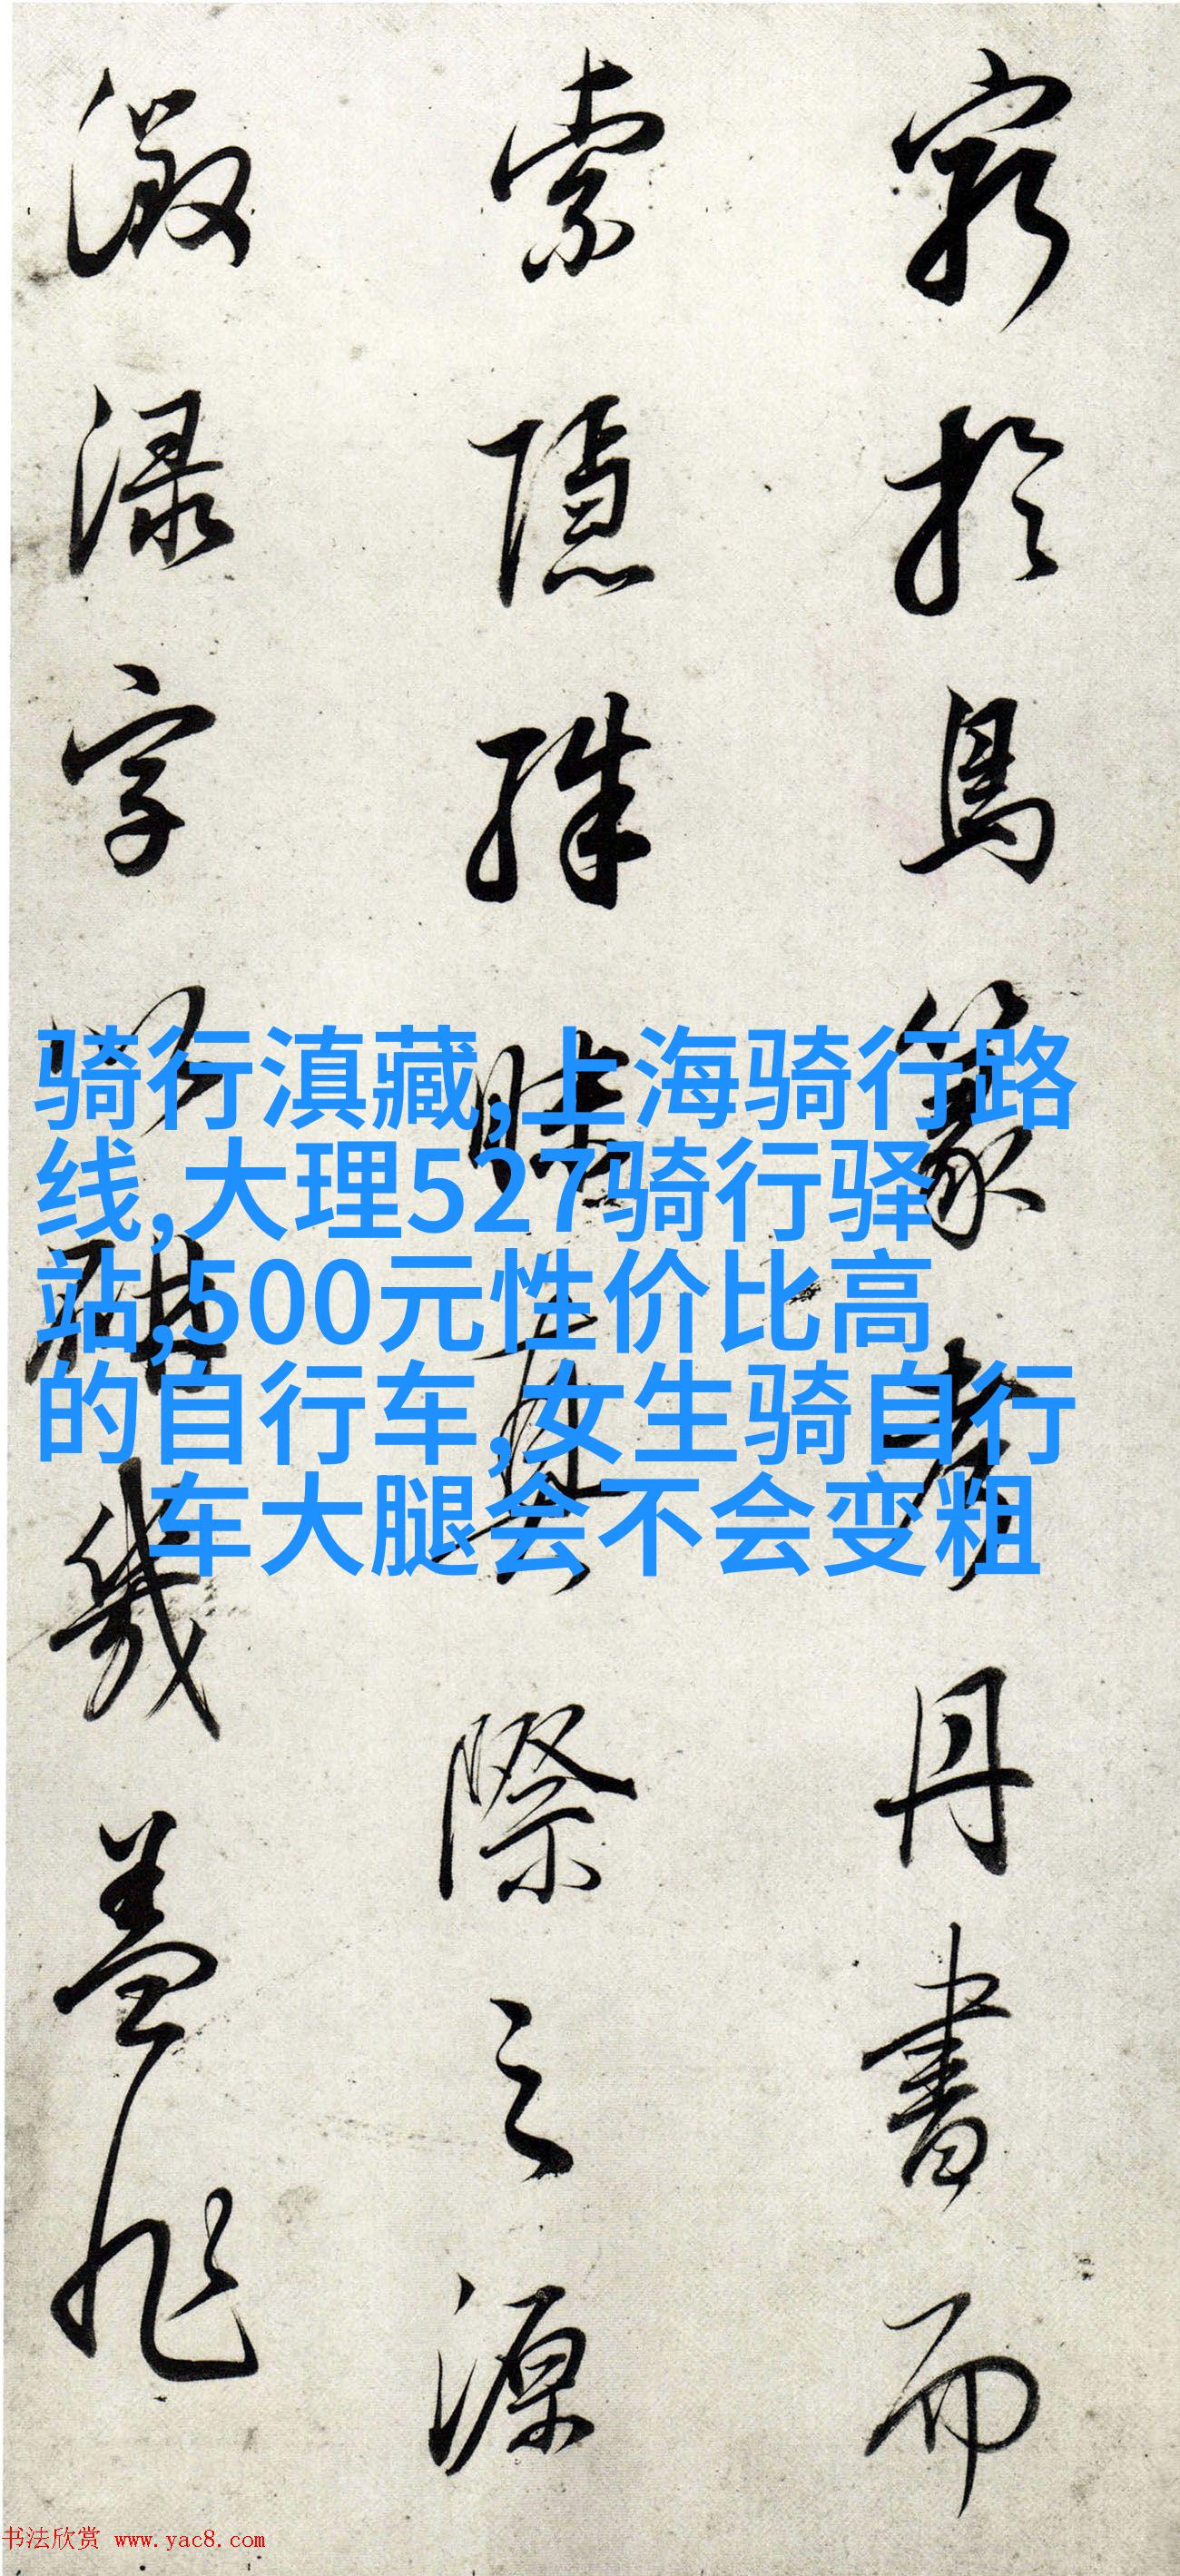 窮於鳥篆考丹書而
索隱殊昧其際之源
激渌字以聯幾蓋非
骑行滇藏,上海骑行路
线,大理527骑行驿
站,500元性价比高
的自行车,女生骑自行
车大腿会不会变粗
书法欣赏 www.yac8.com